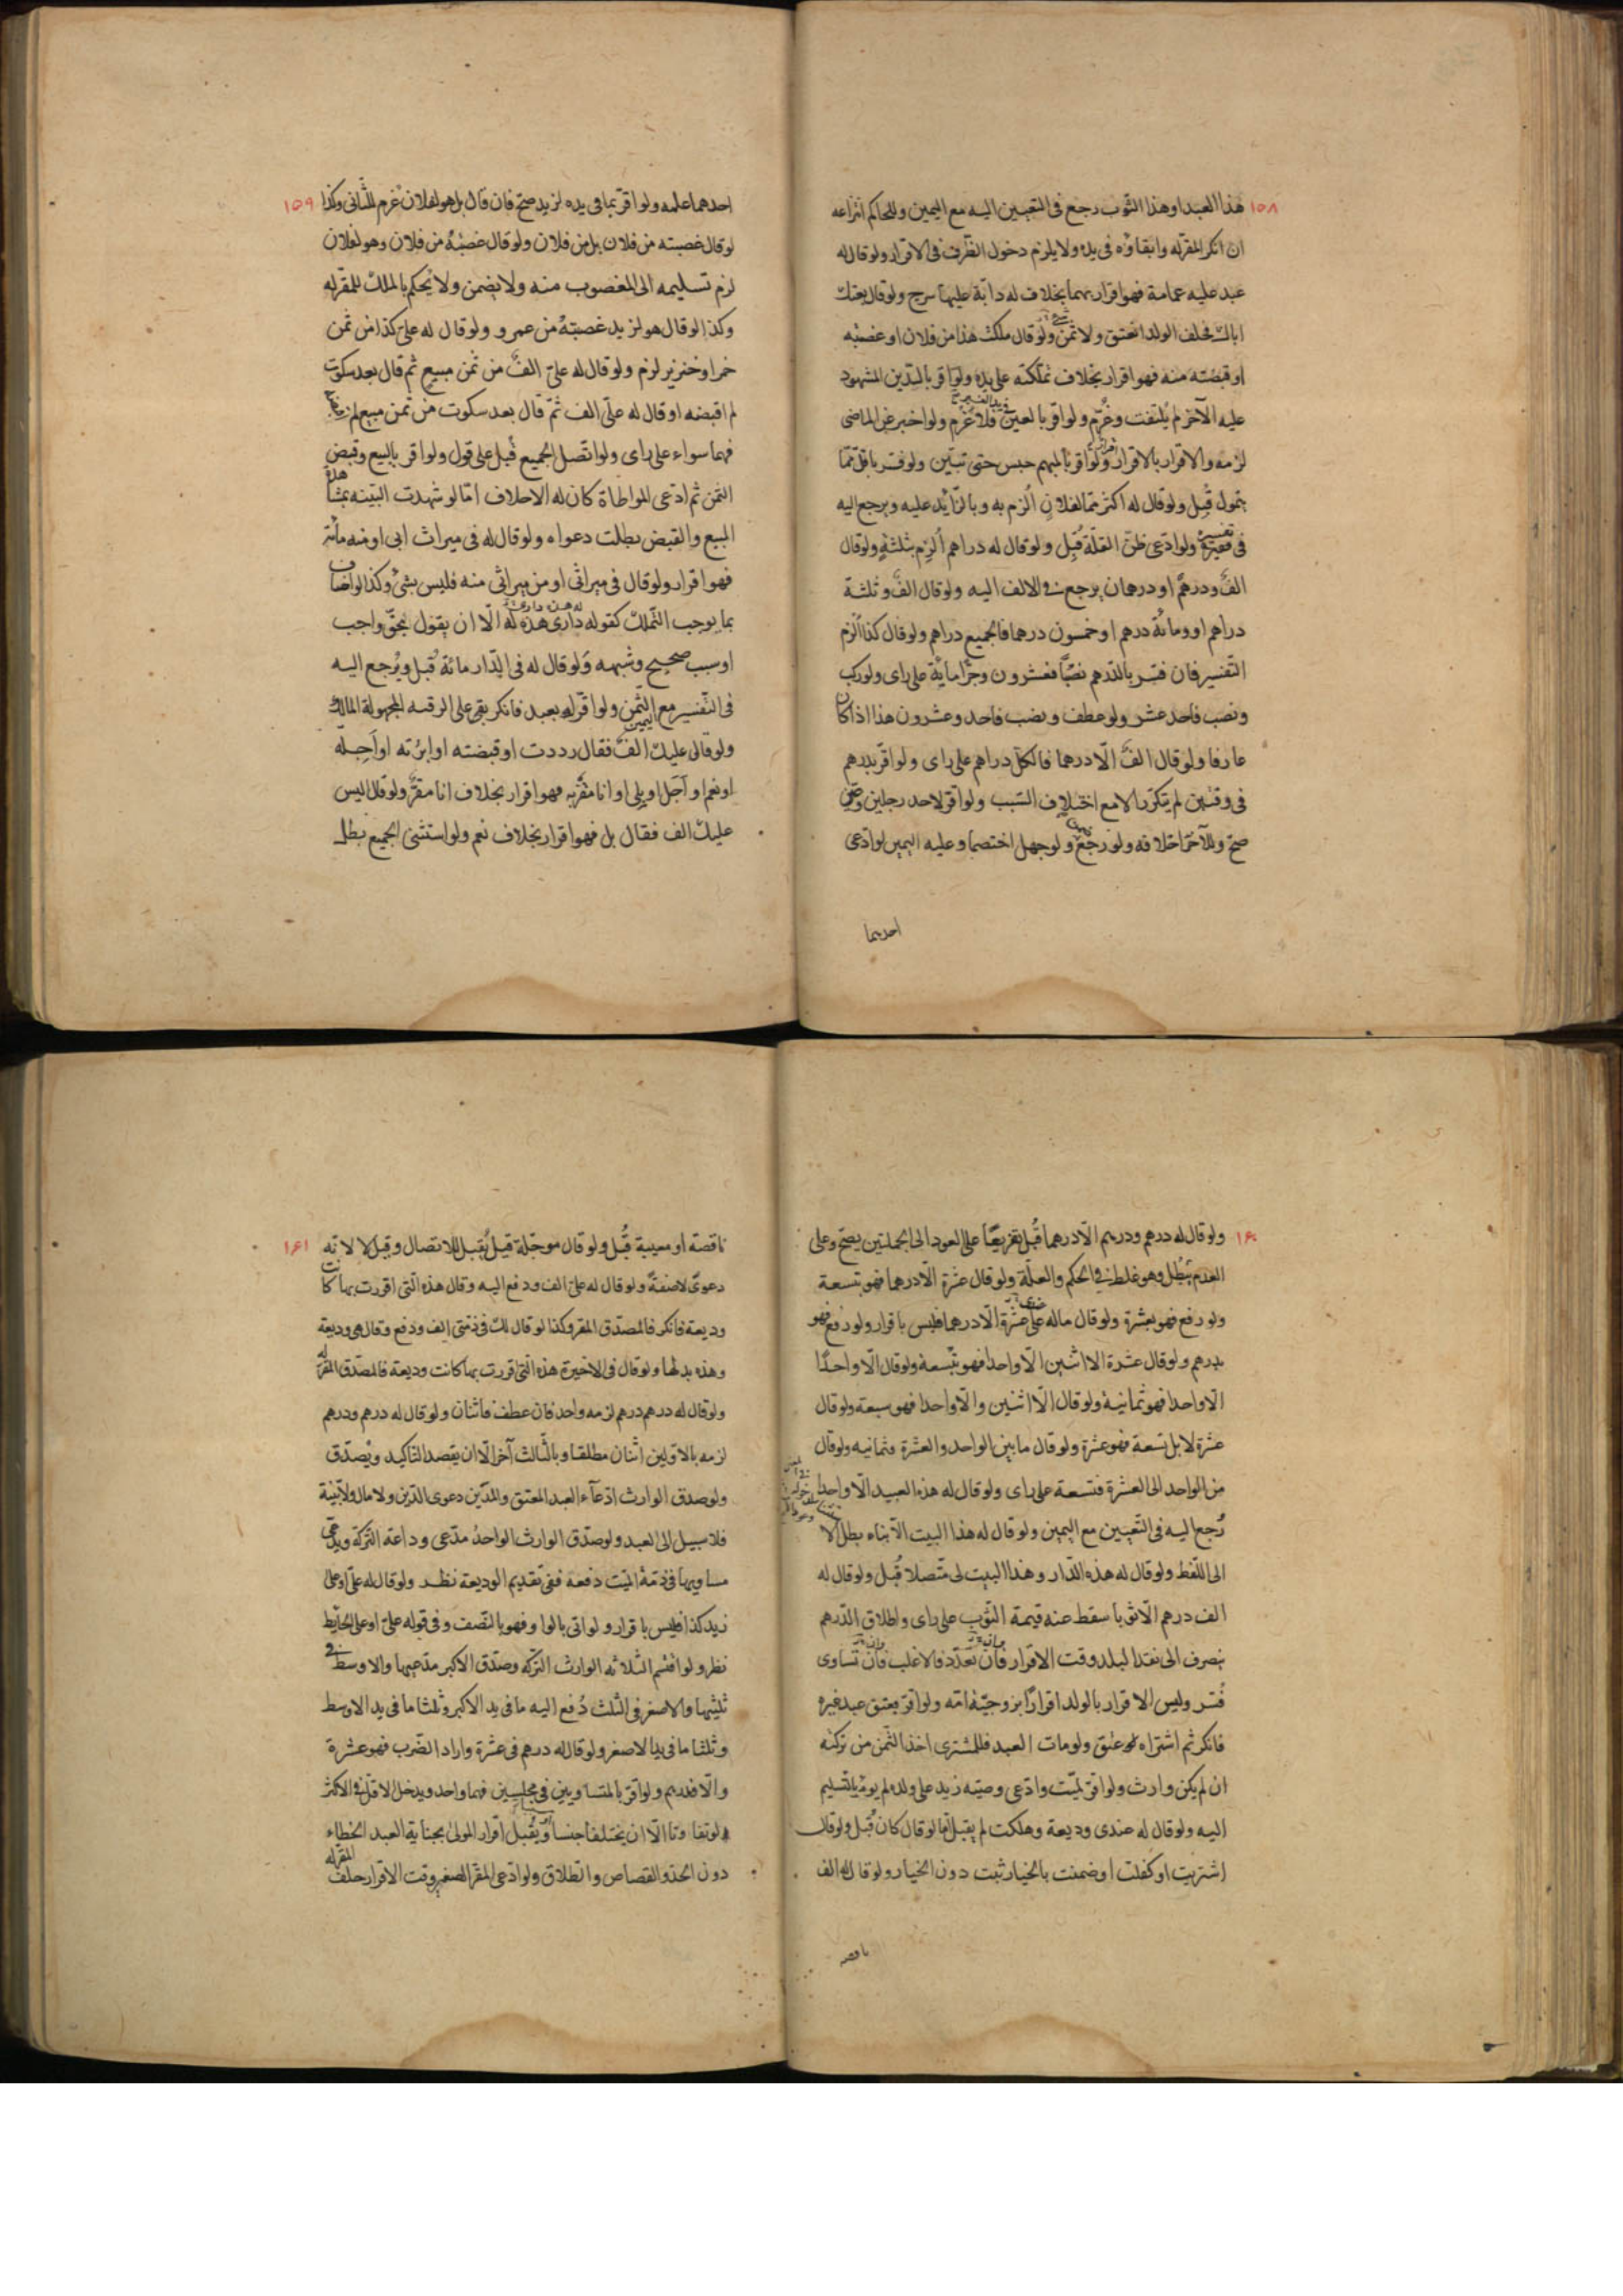 ١٥٨
هذا العبد او هذا الثوب رجع فى التعيين اليه مع اليمين وللحاكم انتزاعه
ان انكر المقر له وابقاؤه فى يده ولا يلزم دخول الظرف فى الاقرار ولو قال له
عبد عليه عمامة فهو اقرار بهما بخلاف له دابة عليها سرج ولو قال بعتك
اباك فحلف الولد انعتق ولا ثمن ولو قال ملكت هذا من فلان او غصبته
او قبضته منه فهو اقرار بخلاف تملكته على يده ولو اقر بالدين المشهود
عليه الآخر لم يلتفت وغرم ولو اقر بالعين فلا غرم ولو اخبر عن الماضى
لزمه والاقرار بالاقرار اقرار ولو اقر بالمبهم حبس حتى تبين ولو فسر باقل مما
يتمول قبل ولو قال له اكثر مما لفلان الزم به وبالزايد عليه ويرجع اليه
فى تفسيره ولو ادعى ظن القلة قبل ولو قال له دراهم الزم بثلثة ولو قال
الف ودرهم او درهمان يرجع فى الالف اليه ولو قال الف وثلثة
دراهم او ومائة درهم او خمسون درهما فالجميع دراهم ولو قال كذا الزم
التفسير فان فسر بالدرهم نصبا فعشرون وجرا مائة على راى ولو ركب
ونصب فاحد عشر ولو عطف ونصب فاحد وعشرون هذا اذا كان
عارفا ولو قال الف الا درهما فالكل دراهم على راى ولو اقر بدرهم
فى وقتين لم يتكرر الا مع اختلاف السبب ولو اقر لاحد رجلين وعين
صح وللآخر احلافه ولو رجع ولو جهل اختصما وعليه اليمين لو ادعى
احدهما
١٥٩
احدهما علمه ولو اقر بما فى يده لزيد صح فان قال بل هو لفلان غرم للثانى وكذا
لو قال غصبته من فلان بل من فلان ولو قال غصبته من فلان وهو لفلان
لزم تسليمه الى المغصوب منه ولا يضمن ولا يحكم بالملك للمقر له
وكذا لو قال هو لزيد غصبته من عمرو ولو قال له على كذا من ثمن
خمر او خنزير لزم ولو قال له على الف من ثمن مبيع ثم قال بعد سكوت
لم اقبضه او قال له على الف ثم قال بعد سكوت من ثمن مبيع لم
فهما سواء على راى ولو اتصل الجميع قبل على قول ولو اقر بالبيع وقبض
الثمن ثم ادعى المواطاة كان له الاحلاف اما لو شهدت البينه بمشاهدة
المبيع والقبض بطلت دعواه ولو قال له فى ميراث ابى او منه مائة
فهو اقرار ولو قال فى ميراثى او من ميراثى منه فليس بشئ وكذا لو اضاف
بما يوجب التملك كقوله دارى هذه له الا ان يقول بحق واجب
او سبب صحيح وشبهه ولو قال له فى الدار مائة قبل ويرجع اليه
فى التفسير مع اليمين ولو اقر له بعبد فانكر بقى على الرقيه المجهولة المالك
ولو قال لى عليك الف فقال رددت او قبضته او ابرئته او اجله
او نعم او اجل او بلى او انا مقر به فهو اقرار بخلاف انا مقر ولو قال اليس
عليك الف فقال بل فهو اقرار بخلاف نعم ولو استثنى الجميع بطل
١٦٠
ولو قال له درهم ودرهم الا درهما قبل تفريعا على العود الى الجملتين يصح وعلى
العدم يبطل وهو غلط فى الحكم والعلة ولو قال عشرة الا درهما فهو بتسعة
ولو رفع فهو بعشرة ولو قال ماله على عشرة الا درهما فليس باقرار ولو رفع فهو
بدرهم ولو قال عشرة الا اثنين الا واحدا فهو بتسعة ولو قال الا واحدا
الا واحدا فهو ثمانية ولو قال الا اثنين والا واحدا فهو سبعة ولو قال
عشرة لا بل تسعة فهو عشرة ولو قال ما بين الواحد والعشرة فثمانيه ولو قال
من الواحد الى العشرة فتسعة على راى ولو قال له هذه العبيد الا واحدا
رجع اليه فى التعيين مع اليمين ولو قال له هذا البيت الا بناءه بطل الا
الى اللفظ ولو قال له هذه الدار وهذا البيت لى متصلا قبل ولو قال له
الف درهم الا ثوبا سقط عنه قيمة الثوب على راى واطلاق الدرهم
ينصرف الى نقد البلد وقت الاقرار فان تعدد فالاغلب فان تساوى
فسر وليس الاقرار بالولد اقرارا بزوجية امه ولو اقر بعتق عبد غيره
فانكر ثم اشتراه عتق ولو مات العبد فللمشترى اخذ الثمن من تركته
ان لم يكن وارث ولو اقر لميت وادعى وصيته زيد على ولده لم يؤمر بالتسليم
اليه ولو قال له عندى وديعة وهلكت لم يقبل اما لو قال كان قبل ولو قال
اشتريت او كفلت او ضمنت بالخيار ثبت دون الخيار ولو قال له الف
ناقصه
١٦١
ناقصة او معيبة قبل ولو قال موجلة قيل يقبل للاتصال وقيل لا لانه
دعوى لا صفة ولو قال له على الف ودفع اليه وقال هذه التى اقررت بها كانت
وديعة فانكر فالمصدق المقر وكذا لو قال لك فى ذمتى الف ودفع وقال هى وديعة
وهذه بدلها ولو قال فى الاخيرة هذه التى اقررت بها كانت وديعة فالمصدق المقر له
ولو قال له درهم درهم لزمه واحد فان عطف فاثنان ولو قال له درهم ودرهم
لزمه بالاولين اثنان مطلقا وبالثالث آخر الا ان يقصد التاكيد ويصدق
ولو صدق الوارث ادعاء العبد المعتق والمدين دعوى الدين ولا مال ولا بينة
فلا سبيل الى العبد ولو صدق الوارث الواحد مدعى وداعة التركة ويدعى
مساويها فى ذمة الميت دفعة ففى تقديم الوديعة نظر ولو قال له على او على
زيد كذا فليس باقرار ولو اتى بالواو فهو بالنصف وفى قوله على او على الحايط
نظر ولو اقتسم الثلاثه الوارث التركه وصدق الاكبر مدعيها والاوسط فى
ثلثيها والاصغر فى الثلث دفع اليه ما فى يد الاكبر وثلثا ما فى يد الاوسط
وثلثا ما فى يد الاصغر ولو قال له درهم فى عشرة واراد الضرب فهو عشرة
والا فدرهم ولو اقر بالمتساويين فى مجلسين فهما واحد ويدخل الاقل فى الاكثر
لو تفاوتا الا ان يختلفا جنسا ويقبل اقرار المولى بجناية العبد الخطاء
دون الحد والقصاص والطلاق ولو ادعى المقر الصغر وقت الاقرار حلف المقر له